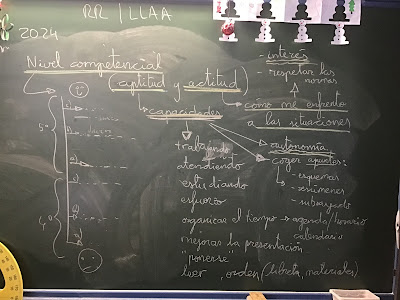 RR / LLAA
2024
Nivel competencial
(aptitud y actitud)
- interés
- respetar las normas
capacidades
cómo me enfrento
a las situaciones
5º
4º
trabajando
atendiendo
estudiando
esfuerzo
organizar el tiempo → agenda/horario
calendario
mejorar la presentación
"ponerse"
leer, orden (libreta, materiales)
- autonomía
- coger apuntes:
- esquemas
- resúmenes
- subrayado